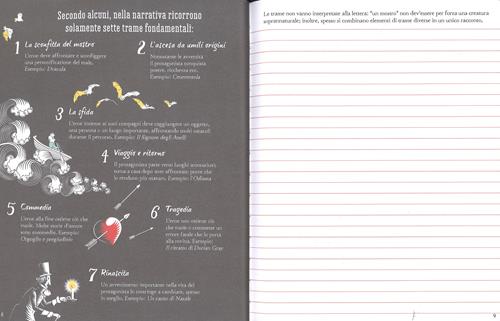 Secondo alcuni, nella narrativa ricorrono
solamente sette trame fondamentali:
1 La sconfitta del mostro
L'eroe deve affrontare e sconfiggere
una personificazione del male.
Esempio: Dracula
2 L'ascesa da umili origini
Nonostante le avversità
il protagonista conquista
potere, ricchezza ecc.
Esempio: Cenerentola
3 La sfida
L'eroe insieme ai suoi compagni deve raggiungere un oggetto,
una persona o un luogo importante, affrontando molti ostacoli
durante il percorso. Esempio: Il Signore degli Anelli
4 Viaggio e ritorno
Il protagonista parte verso luoghi sconosciuti,
torna a casa dopo aver affrontato prove che
lo rendono più maturo. Esempio: l'Odissea
5 Commedia
L'eroe alla fine ottiene ciò che
vuole. Molte storie d'amore
sono commedie. Esempio:
Orgoglio e pregiudizio
6 Tragedia
L'eroe non ottiene ciò che
vuole o commette un
errore fatale che lo porta
alla rovina. Esempio:
Il ritratto di Dorian Gray
7 Rinascita
Un avvenimento importante nella vita del
protagonista lo costringe a cambiare, spesso
in meglio. Esempio: Un canto di Natale
8
Le trame non vanno interpretate alla lettera: "un mostro" non dev'essere per forza una creatura
soprannaturale; inoltre, spesso si combinano elementi di trame diverse in un unico racconto.
9